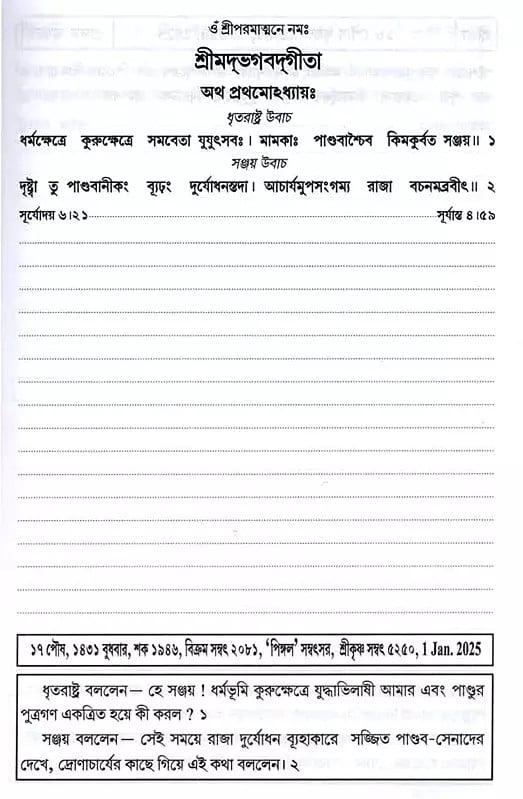 ওঁ শ্রীপরমাত্মনে নমঃ
শ্রীমদ্‌ভগবদ্‌গীতা
অথ প্রথমোঽধ্যায়ঃ
ধৃতরাষ্ট্র উবাচ
ধর্মক্ষেত্রে কুরুক্ষেত্রে সমবেতা যুযুৎসবঃ। মামকাঃ পাণ্ডবাশ্চৈব কিমকুর্বত সঞ্জয়॥ ১
সঞ্জয় উবাচ
দৃষ্ট্বা তু পাণ্ডবানীকং ব্যূঢ়ং দুর্যোধনস্তদা। আচার্যমুপসংগম্য রাজা বচনমব্রবীৎ॥ ২
সূর্যোদয় ৬।২১ সূর্যাস্ত ৪।৫৯
১৭ পৌষ, ১৪৩১ বুধবার, শক ১৯৪৬, বিক্রম সম্বৎ ২০৮১, ‘পিঙ্গল’ সম্বৎসর, শ্রীকৃষ্ণ সম্বৎ ৫২৫০, 1 Jan. 2025
ধৃতরাষ্ট্র বললেন— হে সঞ্জয় ! ধর্মভূমি কুরুক্ষেত্রে যুদ্ধাভিলাষী আমার এবং পাণ্ডুর
পুত্রগণ একত্রিত হয়ে কী করল ? ১
সঞ্জয় বললেন— সেই সময়ে রাজা দুর্যোধন ব্যূহাকারে সজ্জিত পাণ্ডব-সেনাদের
দেখে, দ্রোণাচার্যের কাছে গিয়ে এই কথা বললেন। ২